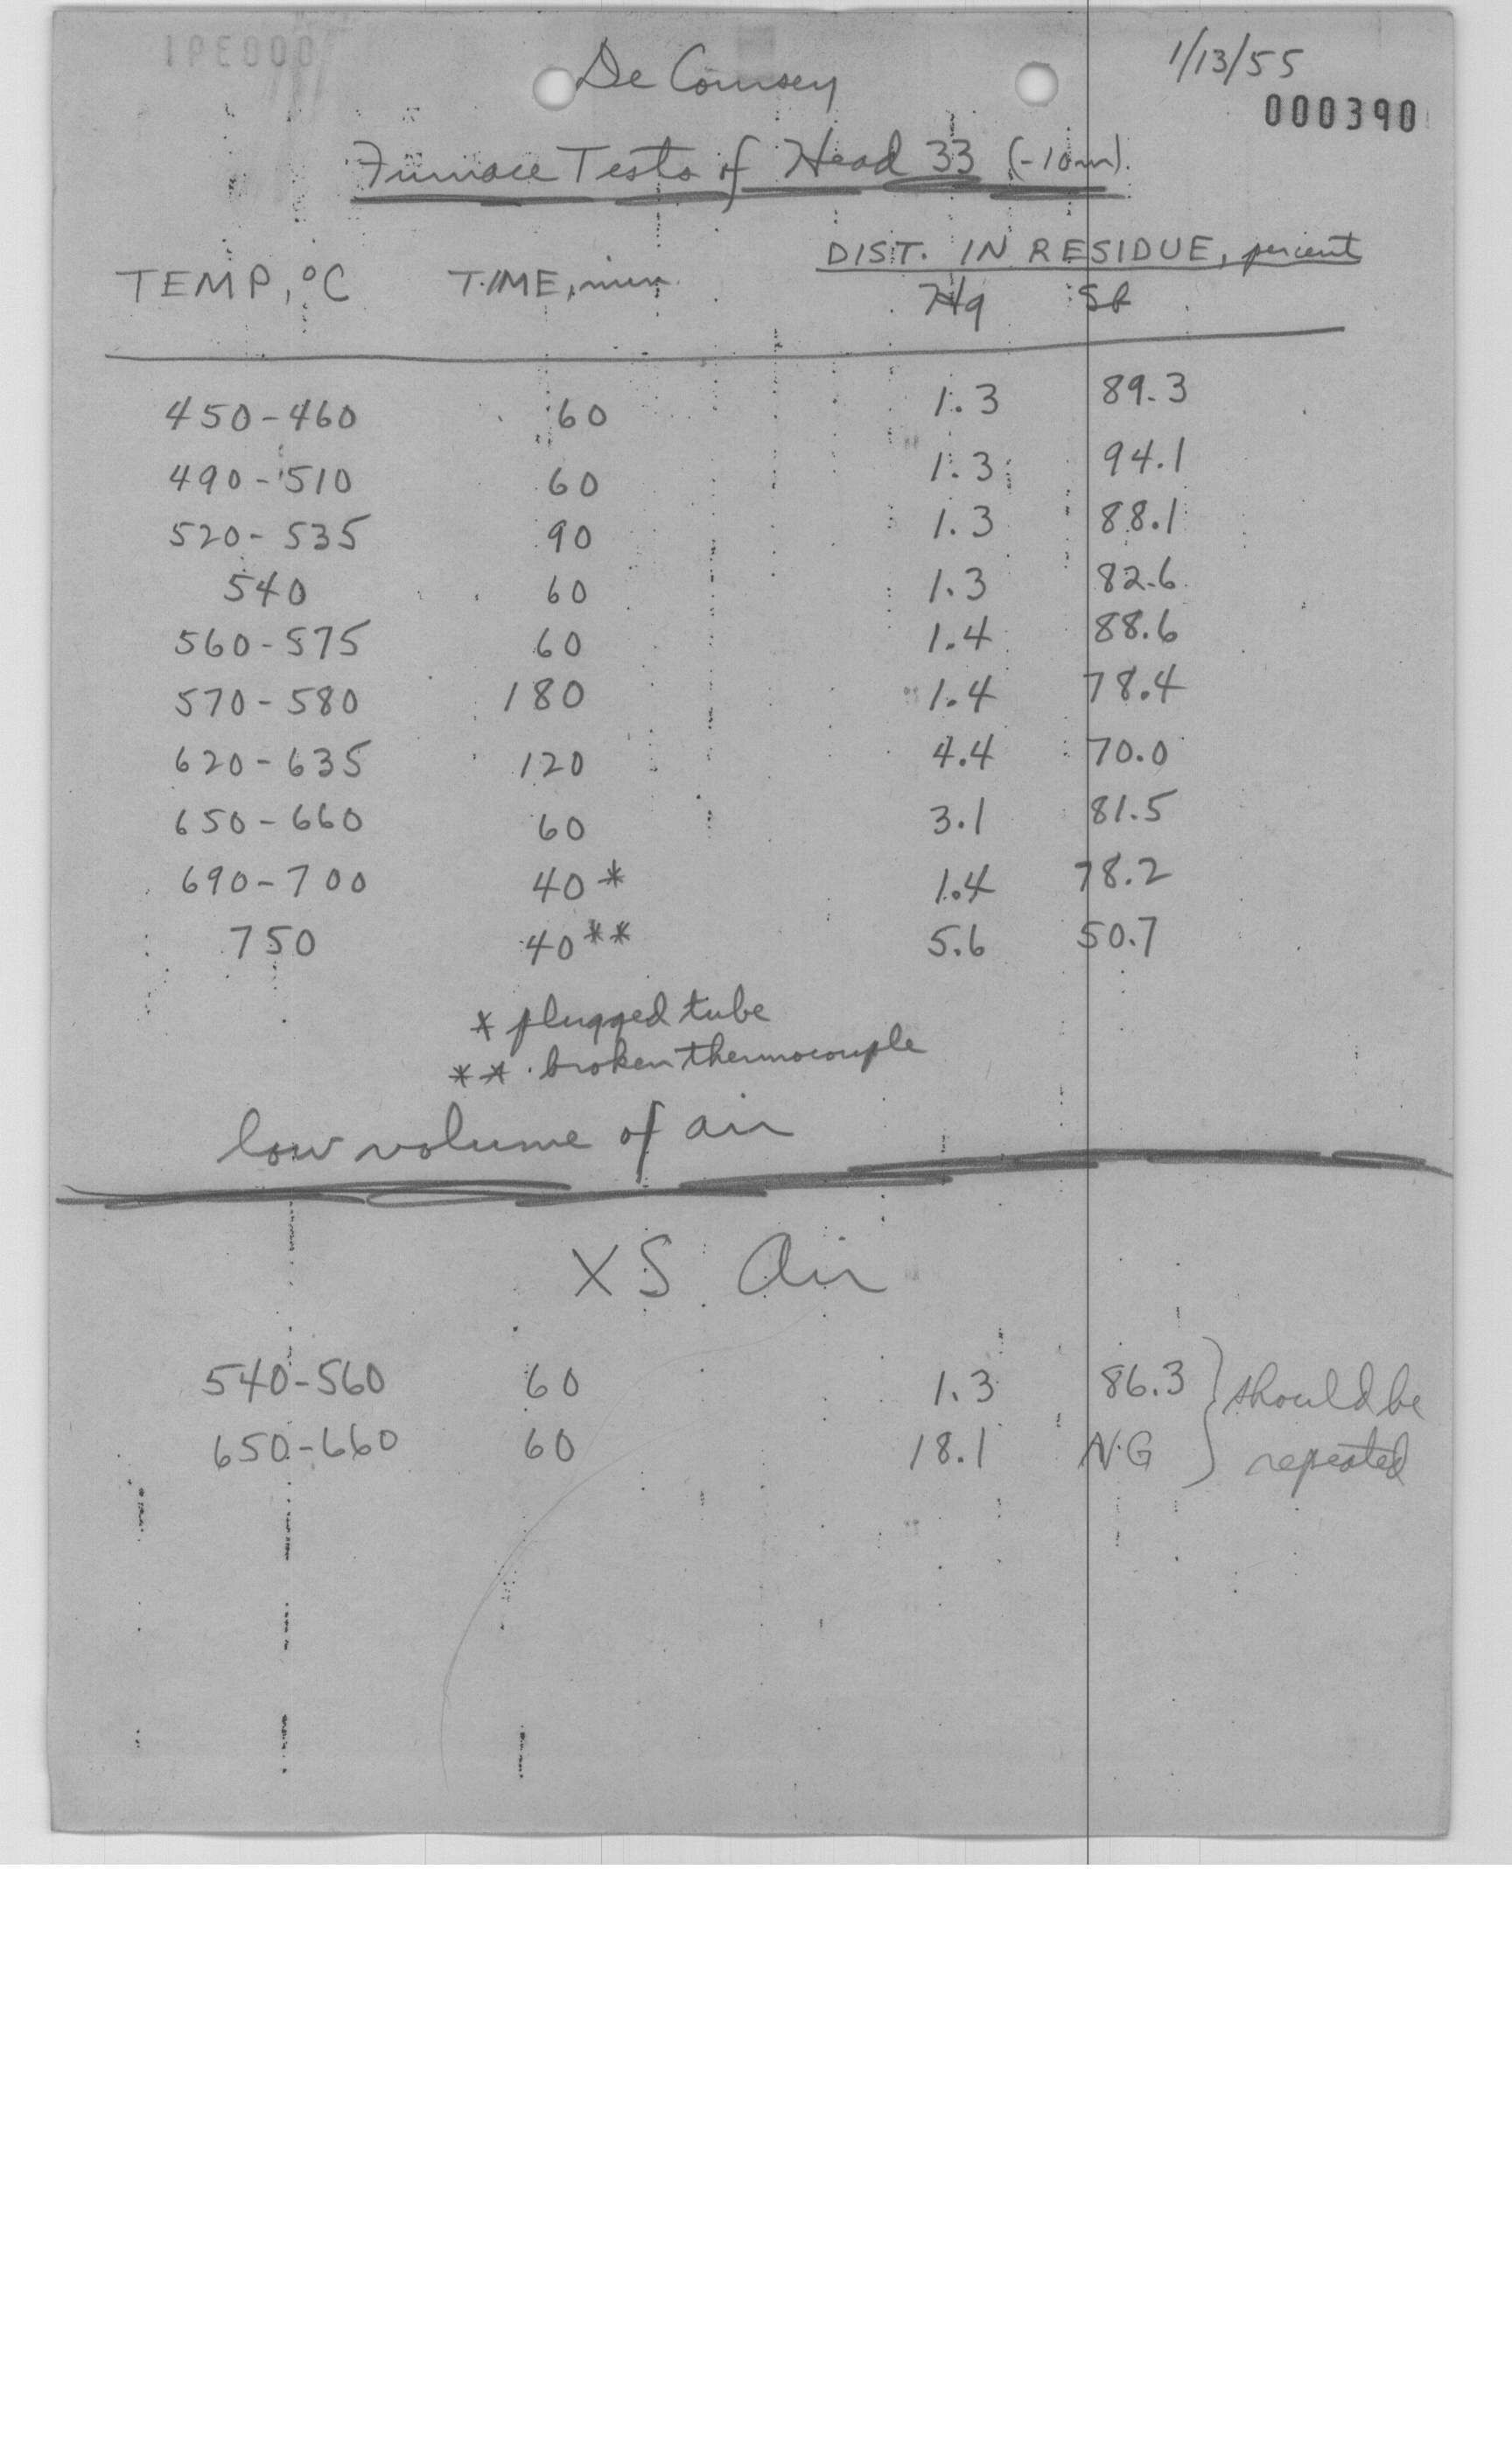 De Coursey
1/13/55
000390
000391
Furnace Tests of Head 33 (-10m).
DIST. IN RESIDUE, percent
TEMP, °C TIME, min. Hg Sb
450-460 60 1.3 89.3
490-510 60 1.3 94.1
520-535 90 1.3 88.1
540 60 1.3 82.6
560-575 60 1.4 88.6
570-580 180 1.4 78.4
620-635 120 4.4 70.0
650-660 60 3.1 81.5
690-700 40* 1.4 78.2
750 40** 5.6 50.7
* plugged tube
** broken thermocouple
low volume of air
XS Air
540-560 60 1.3 86.3 } should be
650-660 60 18.1 N.G } repeated